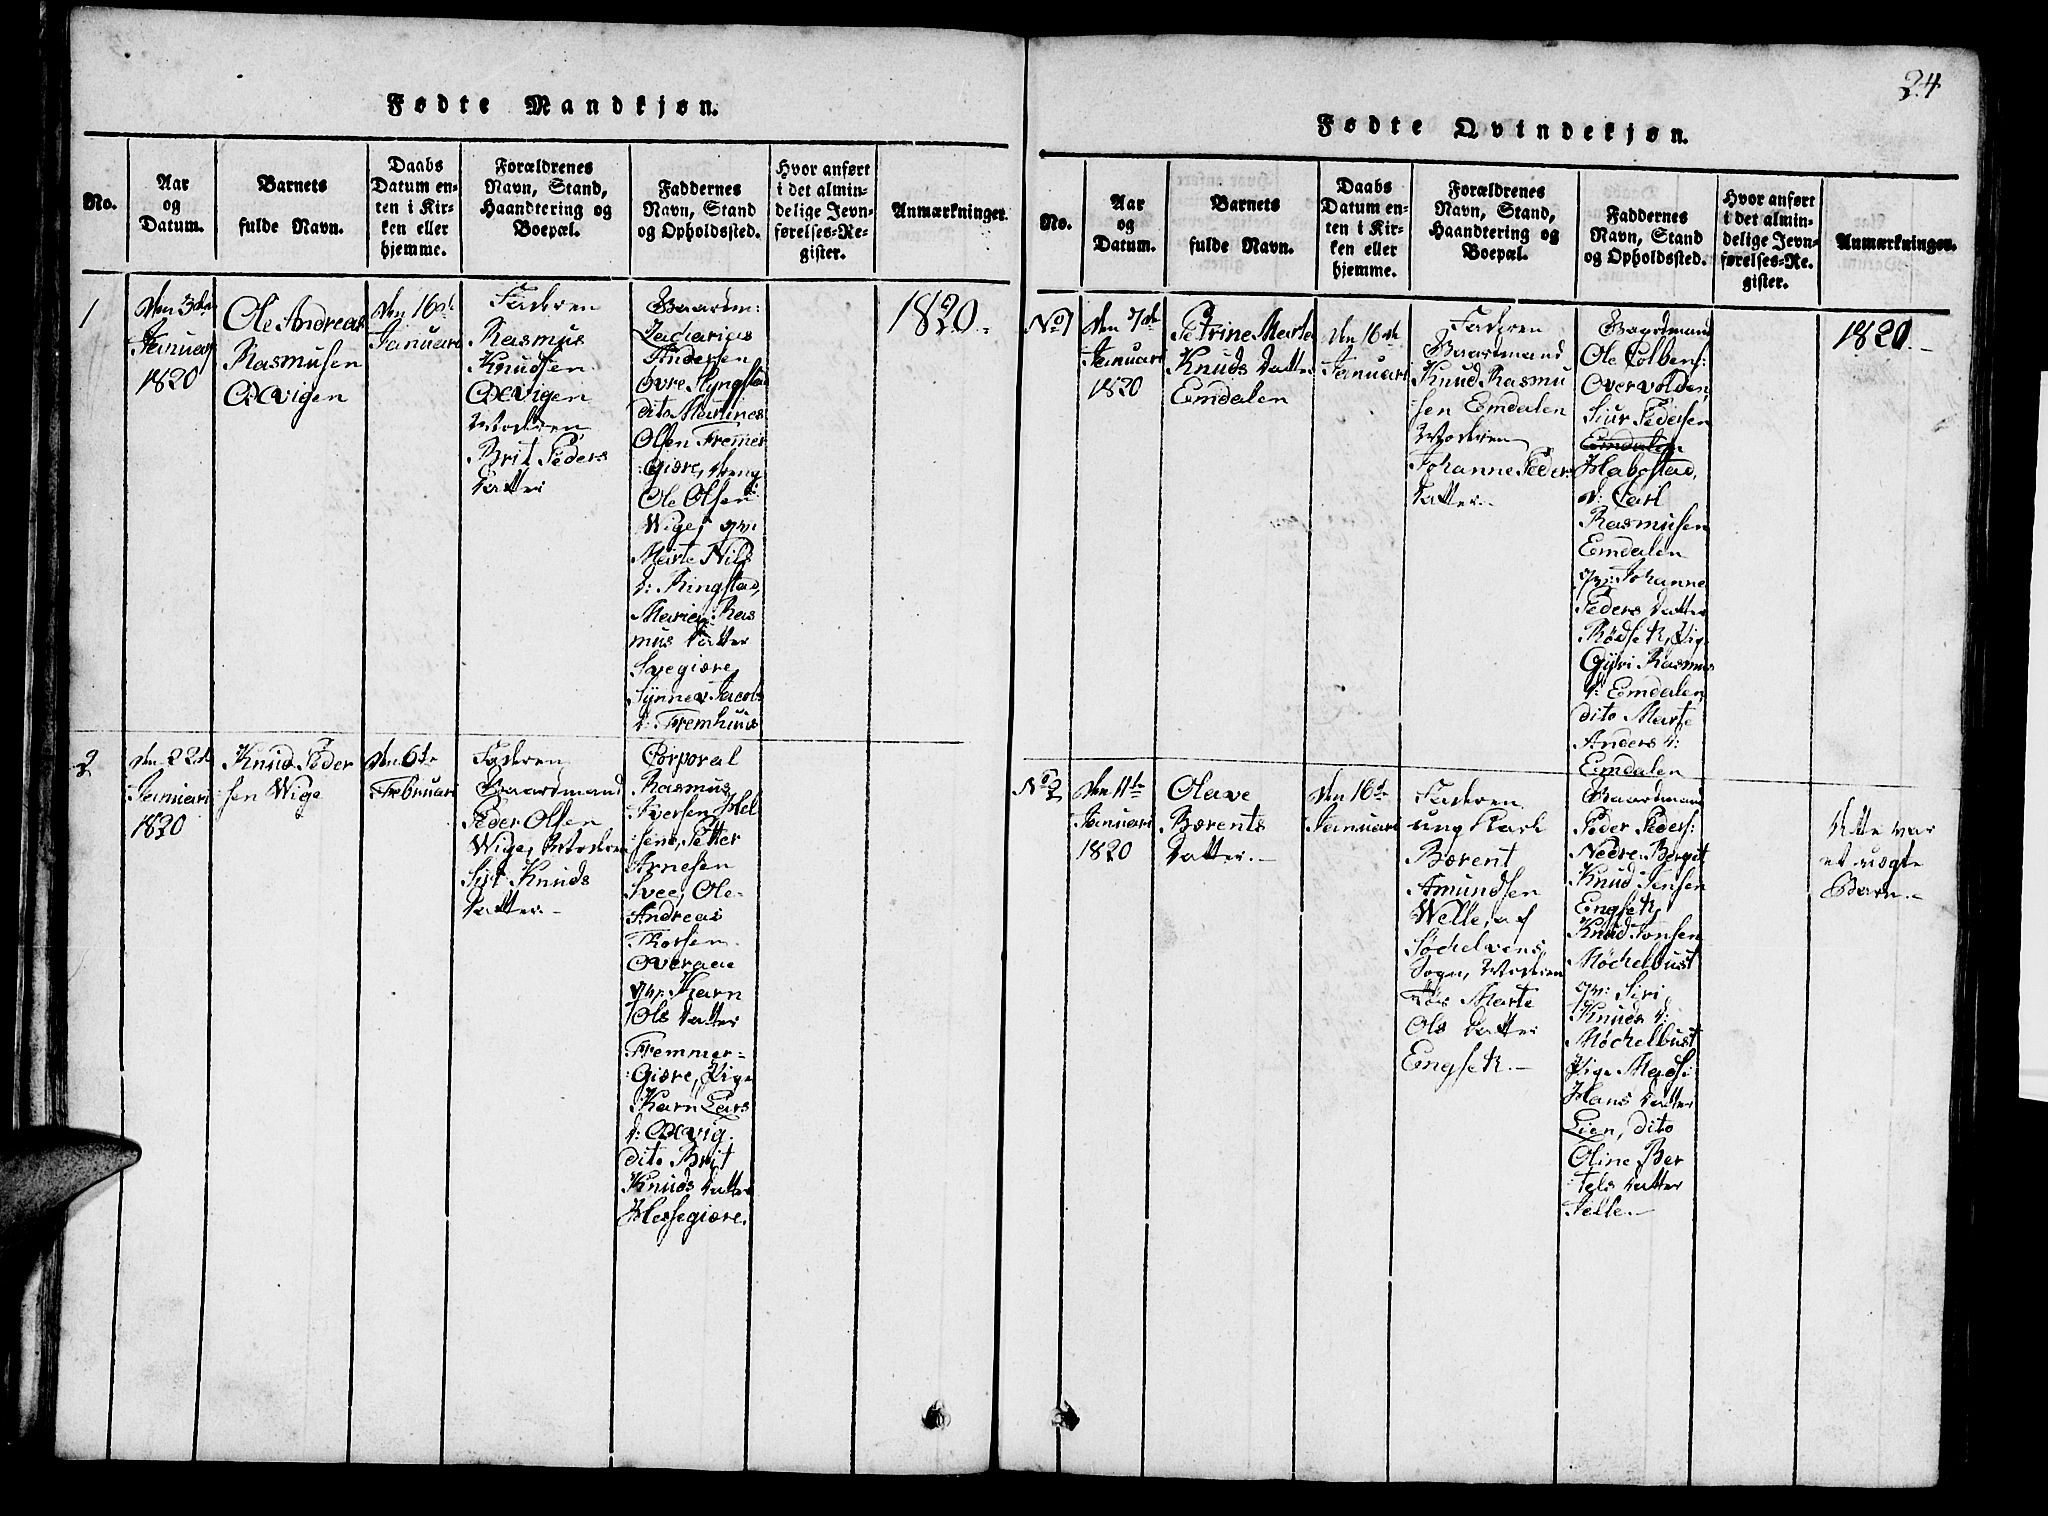 Fødte Mandkjøn.
No.
Aar
og
Datum.
Barnets
fulde Navn.
Daabs
Datum en-
ten i Kir-
ken eller
hjemme.
Forældrenes
Navn, Stand,
Haandtering og
Boepæl.
Faddernes
Navn, Stand
og Opholdssted.
Hvor anført
i det almin-
delige Jevn-
førelses-Re-
gister.
Anmærkninger.
1
den 3die
Januar
1820
Ole Andreas
Rasmusen
Oxvigen
den 16de
Januari
Faderen
Rasmus
Knudsen
Oxvigen
Moderen
Brit Peders
datter
Gaardm:
Zacharias
Andersen
øvre Ryngstad
dito Martines
Olsen Fremer
giære, dreng
Ole Olsen
Wige,
Marte Nils
d: Ringstad,
Marie Ras
mus datter
Svegiære,
Synnev Jacobs
d: Fremhuus
1820.
2
den 22de
Januari
1820
Knud Peder
sen Wige
den 6te
Februari
Faderen
Gaardmand
Peder Olsen
Wige, Moderen
Siri Knuds
datter.
Corporal
Rasmus
Iversen Hel
sene, Petter
Arnesen
Svee, Ole
Andreas
Thorsen
Overaae
Karn
Ols datter
Fremmer-
giære, Pige
Karn Lars
d: Oxvig.
dito Brit
Knuds datter
Hessegiære.
24
Fødte Qvindekjøn.
No.
Aar
og
Datum.
Barnets
fulde Navn.
Daabs
Datum en-
ten i Kir-
ken eller
hjemme.
Forældrenes
Navn, Stand,
Haandtering og
Boepæl.
Faddernes
Navn, Stand
og Opholdssted.
Hvor anført
i det almin-
delige Jevn-
førelses-Re-
gister.
Anmærkninger.
No 1
den 7de
Januari
1820
Petrine Marta
Knuds datter
Emdalen
den 16de
Januari
Faderen
Gaardmand
Knud Rasmu
sen Emdalen
Moderen
Johanne Peders
datter.
Gaardmand
Ole Colbens:
Overvolden,
Siur Pedersen
Emdalen
Habostad,
d: Carl
Rasmusen
Emdalen
Johanne
Peders datter
Rødset, Pig:
Gyri Rasmus
d: Emdalen,
dito Marte
Anders d:
Emdalen
1820.
No 2
den 11te
Januari
1820
Olave
Bærents
datter.
den 16de
Januari
Faderen
ung Karl
Bærent
Amundsen
Welle, af
Søchelvens
Sogn, Moderen
Marte
Ols datter
Engset.
Gaardmand
Peder Peders:
Nedre Berget
Knud Jensen
Engset,
Knud Jonsen
Møchelbust
Siri
Knuds d:
Møchelbust
Pige Mads:
Hans datter
Lien, dito
Oline Ber
tels datter
Velle.
dette var
et uægte
Barn.